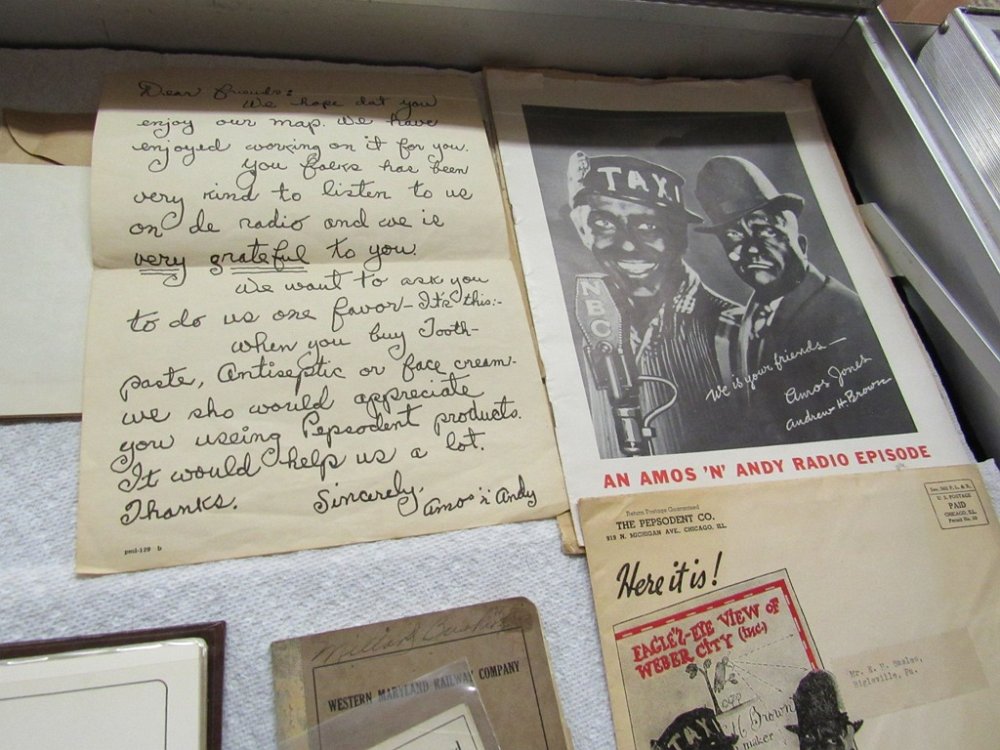 Dear friends:
We hope dat you
enjoy our map. We have
enjoyed working on it for you.
You folks has been
very kind to listen to us
on de radio and we is
very grateful to you.
We want to ask you
to do us one favor - It's this:-
When you buy Tooth-
paste, Antiseptic or face cream-
we sho would appreciate
you useing Pepsodent products.
It would help us a lot.
Thanks. Sincerely,
Amos 'n' Andy
pml-129 b
TAXI
NBC
We is your friends —
Amos Jones
Andrew H. Brown
AN AMOS 'N' ANDY RADIO EPISODE
Return Postage Guaranteed
THE PEPSODENT CO.
919 N. MICHIGAN AVE., CHICAGO, ILL.
Sec. 562 P. L. & R.
U. S. POSTAGE
PAID
CHICAGO, ILL.
Permit No.
Here it is!
EAGLE'Z-EYE VIEW OF
WEBER CITY (INC)
Mr. E. H.
Bigleville, Pa.
H Brown
maker
TAXI
WESTERN MARYLAND RAILWAY COMPANY